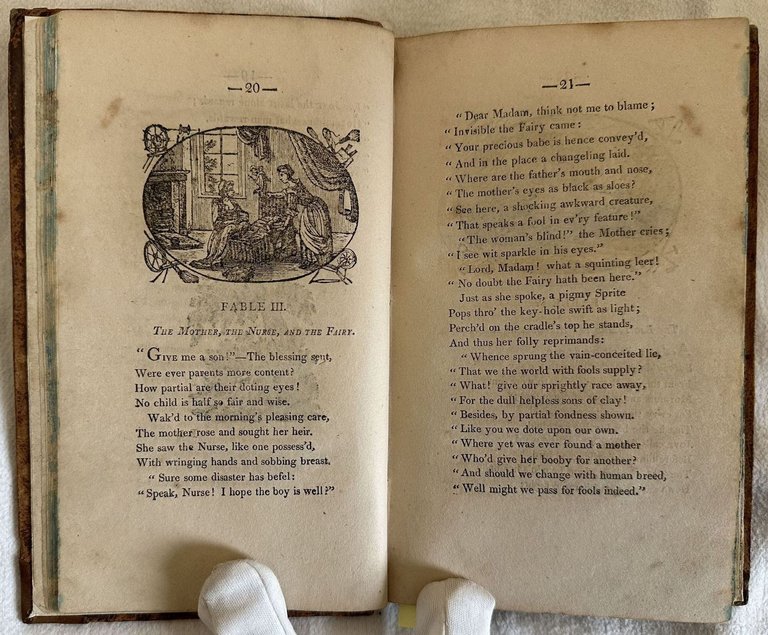 —20—
FABLE III.
THE MOTHER, THE NURSE, AND THE FAIRY.
"GIVE me a son!"—The blessing sent,
Were ever parents more content?
How partial are their doting eyes!
No child is half so fair and wise.
Wak'd to the morning's pleasing care,
The mother rose and sought her heir.
She saw the Nurse, like one possess'd,
With wringing hands and sobbing breast.
"Sure some disaster has befel:
"Speak, Nurse! I hope the boy is well?"
—21—
"Dear Madam, think not me to blame;
"Invisible the Fairy came:
"Your precious babe is hence convey'd,
"And in the place a changeling laid.
"Where are the father's mouth and nose,
"The mother's eyes as black as sloes?
"See here, a shocking awkward creature,
"That speaks a fool in ev'ry feature!"
"The woman's blind!" the Mother cries;
"I see wit sparkle in his eyes."
"Lord, Madam! what a squinting leer!
"No doubt the Fairy hath been here."
Just as she spoke, a pigmy Sprite
Pops thro' the key-hole swift as light;
Perch'd on the cradle's top he stands,
And thus her folly reprimands:
"Whence sprung the vain-conceited lie,
"That we the world with fools supply?
"What! give our sprightly race away,
"For the dull helpless sons of clay!
"Besides, by partial fondness shown.
"Like you we dote upon our own.
"Where yet was ever found a mother
"Who'd give her booby for another?
"And should we change with human breed,
"Well might we pass for fools indeed."